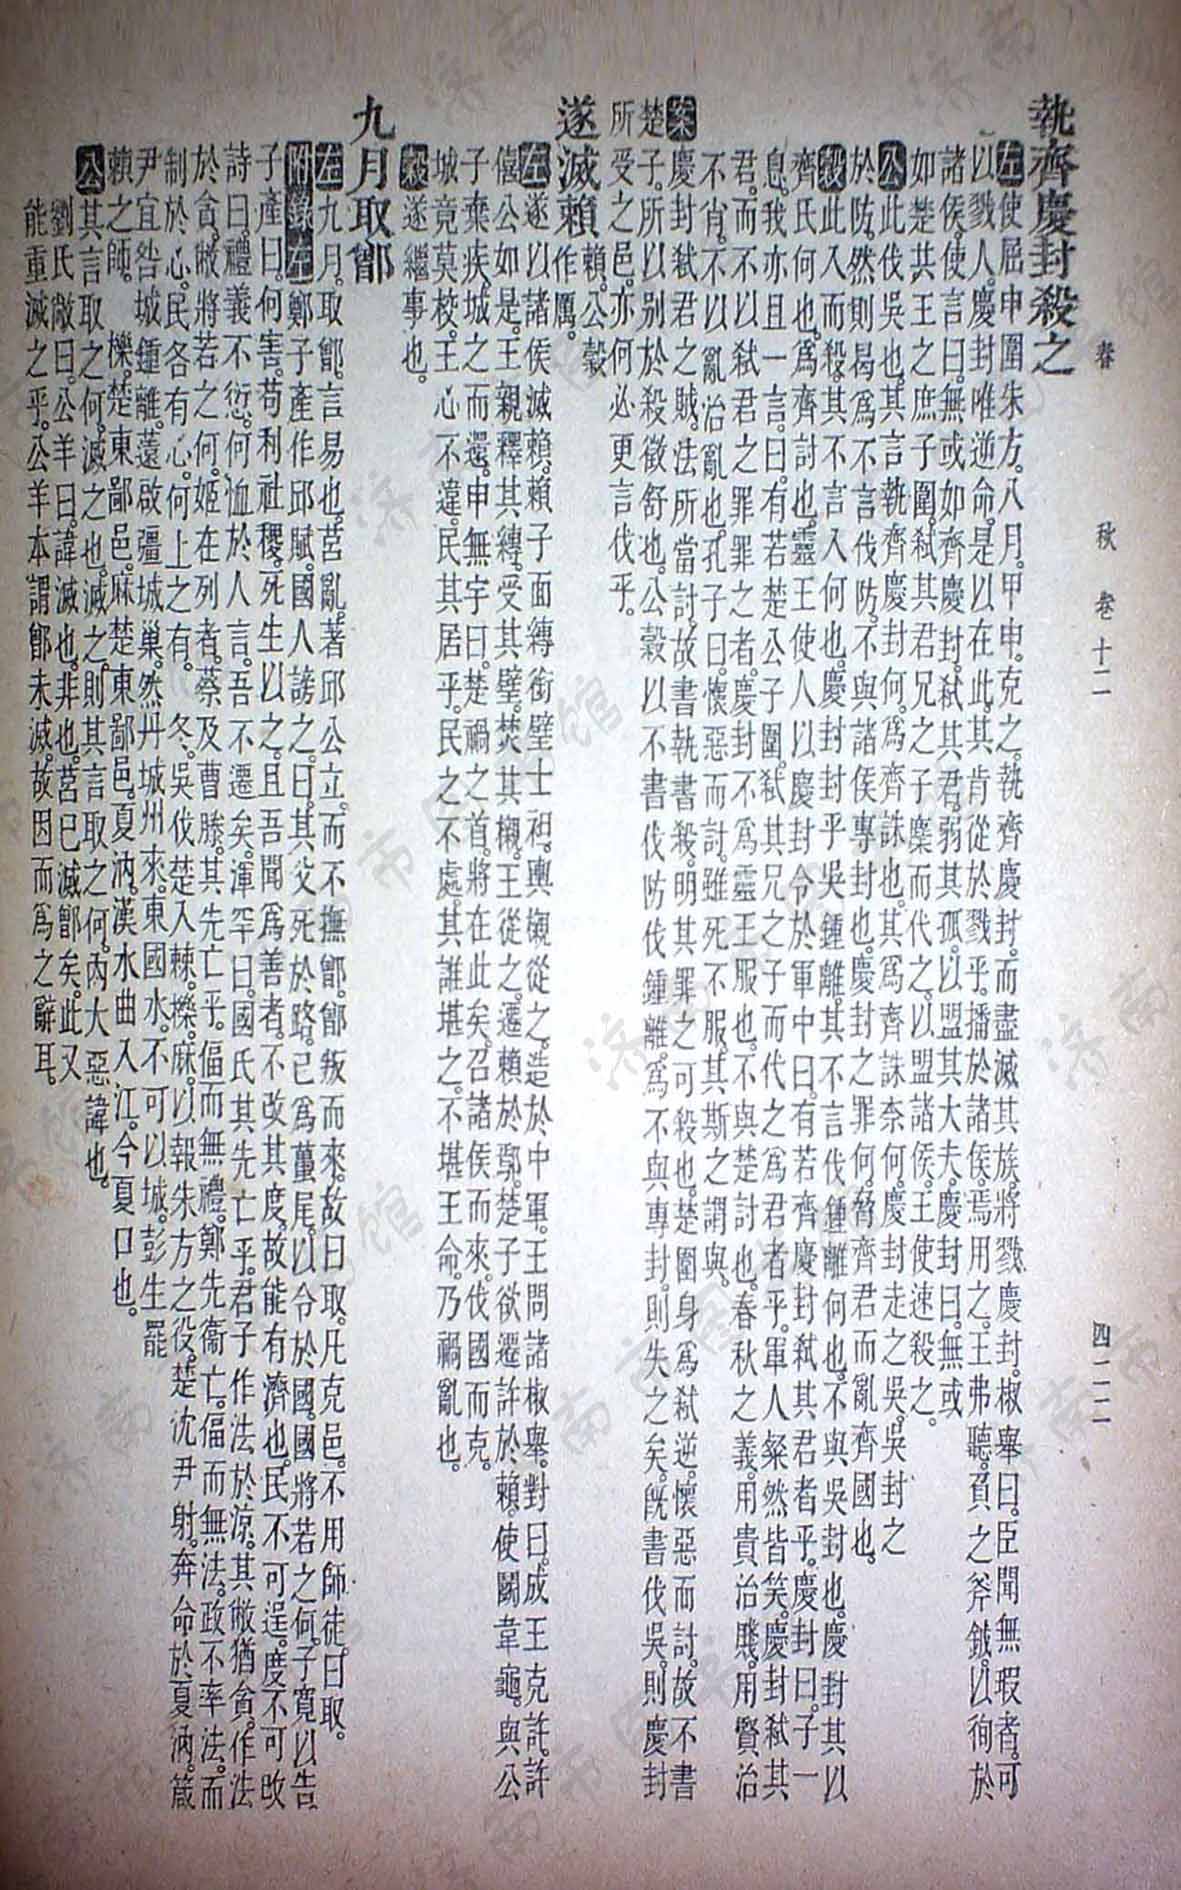 春秋 卷十二 四二二
執齊慶封殺之
左使屈申圍朱方。八月。甲申。克之。執齊慶封。而盡滅其族。將戮慶封。椒舉曰。臣聞無瑕者。可
以戮人。慶封唯逆命。是以在此。其肯從於戮乎。播於諸侯。焉用之。王弗聽。負之斧鉞。以徇於
諸侯。使言曰。無或如齊慶封。弒其君。弱其孤。以盟其大夫。慶封曰。無或
如楚共王之庶子圍。弒其君兄之子麇而代之。以盟諸侯。王使速殺之。
公此伐吳也。其言執齊慶封何。爲齊誅也。其爲齊誅奈何。慶封走之吳。吳封之
於防。然則曷爲不言伐防。不與諸侯專封也。慶封之罪何。脅齊君而亂齊國也。
穀此入而殺。其不言入何也。慶封封乎吳鍾離。其不言伐鍾離何也。不與吳封也。慶封其以
齊氏何也。爲齊討也。靈王使人以慶封令於軍中曰。有若齊慶封弒其君者乎。慶封曰。子一
息。我亦且一言。曰。有若楚公子圍。弒其兄之子而代之爲君者乎。軍人粲然皆笑。慶封弒其
君。而不以弒君之罪罪之者。慶封不爲靈王服也。不與楚討也。春秋之義。用貴治賤。用賢治
不肖。不以亂治亂也。孔子曰。懷惡而討。雖死不服。其斯之謂與。
案慶封弒君之賊。法所當討。故書執書殺。明其罪之可殺也。楚圍身爲弒逆。懷惡而討。故不書
楚子。所以别於殺徵舒也。公穀以不書伐防伐鍾離。爲不與專封。則失之矣。旣書伐吳。則慶封
所受之邑。亦何必更言伐乎。
遂滅賴 賴。公穀作厲。
左遂以諸侯滅賴。賴子面縛銜璧。士袒。輿櫬從之。造於中軍。王問諸椒舉。對曰。成王克許。許
僖公如是。王親釋其縛。受其璧。焚其櫬。王從之。遷賴於鄢。楚子欲遷許於賴。使鬭韋龜。與公
子棄疾。城之而還。申無宇曰。楚禍之首。將在此矣。召諸侯而來。伐國而克。
城竟莫校。王心不違。民其居乎。民之不處。其誰堪之。不堪王命。乃禍亂也。
穀遂繼事也。
九月取鄫
左九月。取鄫。言易也。莒亂。著邱公立。而不撫鄫。鄫叛而來。故曰取。凡克邑。不用師徒。曰取。
附錄左鄭子產作邱賦。國人謗之。曰。其父死於路。己爲蠆尾。以令於國。國將若之何。子寬以告
子產曰。何害。苟利社稷。死生以之。且吾聞爲善者。不改其度。故能有濟也。民不可逞。度不可改。
詩曰。禮義不愆。何恤於人言。吾不遷矣。渾罕曰。國氏其先亡乎。君子作法於涼。其敝猶貪。作法
於貪。敝將若之何。姬在列者。蔡及曹滕。其先亡乎。偪而無禮。鄭先衞亡。偪而無法。政不率法。而
制於心。民各有心。何上之有。 冬。吳伐楚。入棘。櫟。麻。以報朱方之役。楚沈尹射。奔命於夏汭。箴
尹宜咎城鍾離。薳啟疆城巢。然丹城州來。東國水。不可以城。彭生罷
賴之師。 櫟。楚東鄙邑。麻。楚東鄙邑。夏汭。漢水曲入江。今夏口也。
公其言取之何。滅之也。滅之。則其言取之何。內大惡諱也。
劉氏敞曰。公羊曰。諱滅也。非也。莒已滅鄫矣。此又
能重滅之乎。公羊本謂鄫未滅。故因而爲之辭耳。